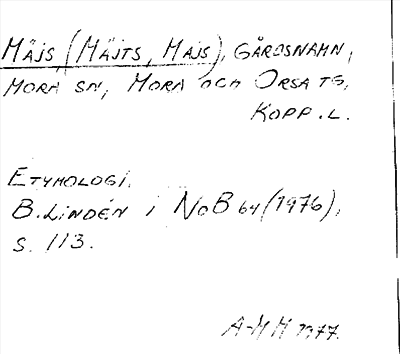 MÄJS (MÄJTS, MAJS), GÅRDSNAMN,
MORA SN, MORA OCH ORSA TG,
KOPP. L.
ETYMOLOGI.
B. LINDÉN I NoB 64 (1976),
S. 113.
A-MH 1977.